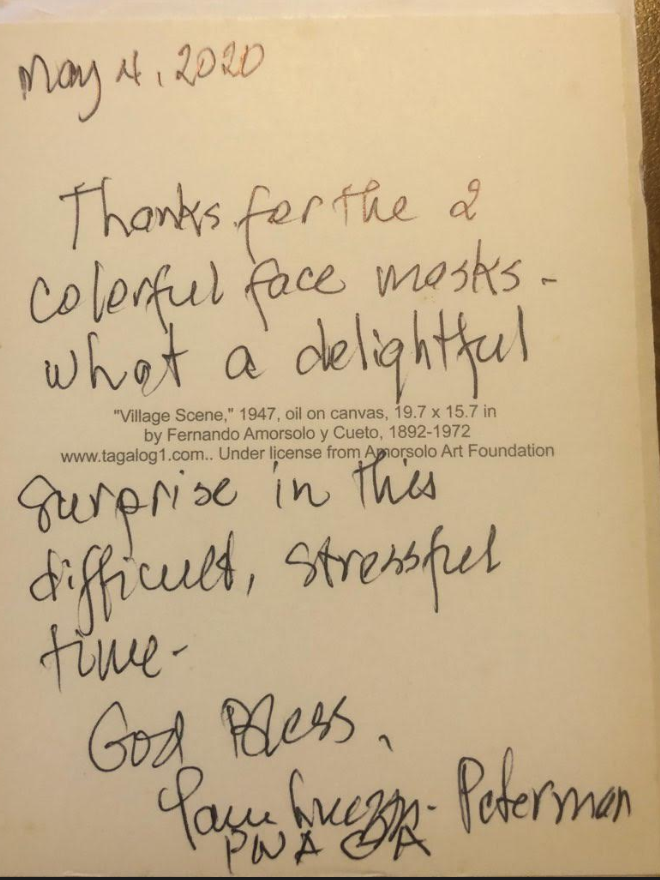 May 4, 2020
Thanks for the 2
colorful face masks -
what a delightful
"Village Scene," 1947, oil on canvas, 19.7 x 15.7 in
by Fernando Amorsolo y Cueto, 1892-1972
www.tagalog1.com.. Under license from Amorsolo Art Foundation
surprise in this
difficult, stressful
time-
God Bless,
Peterman
PWA GA